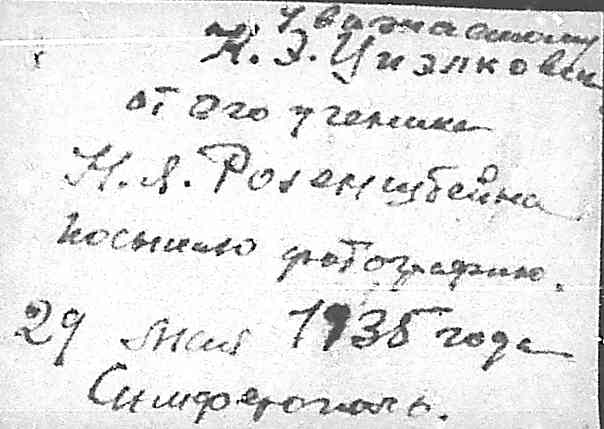 Уважаемому
К. Э. Циэлковском
от его ученика
Н. Я. Розенштейна
посылаю фотографию.
29 мая 1935 года
Симферополь.